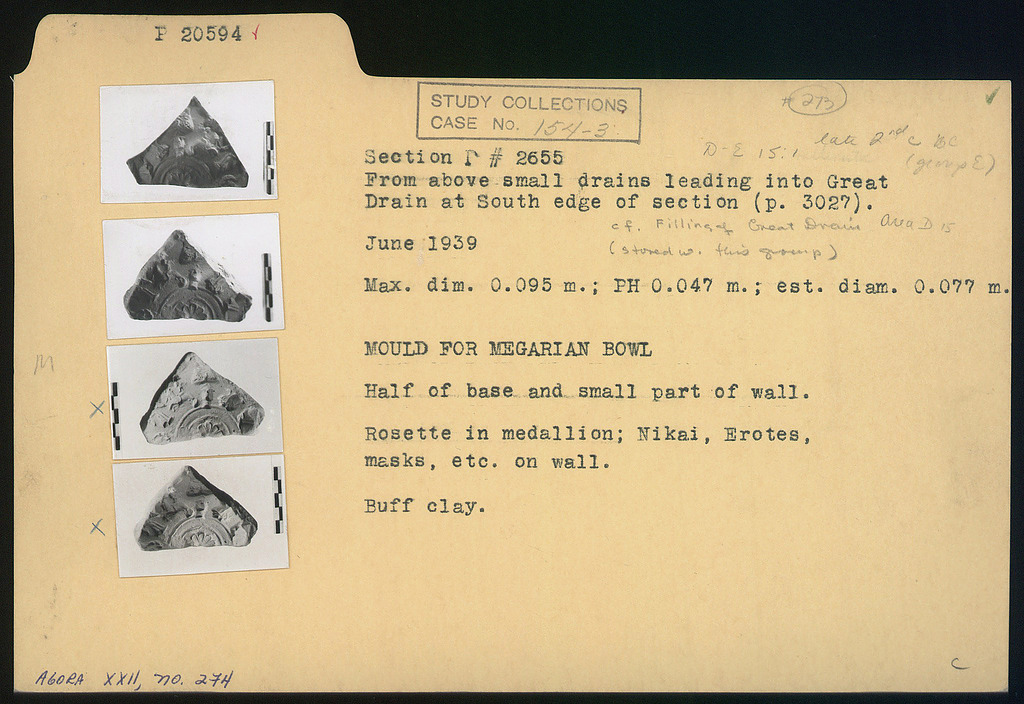 P 20594 ✓
STUDY COLLECTIONS
CASE No. 154-3
# 273
late 2nd c BC
D-E 15:1
(group E)
Section Γ # 2655
From above small drains leading into Great
Drain at South edge of section (p. 3027).
cf. Filling of Great Drain Area D 15
(stored w. this group)
June 1939
Max. dim. 0.095 m.; PH 0.047 m.; est. diam. 0.077 m.
MOULD FOR MEGARIAN BOWL
M
Half of base and small part of wall.
X
Rosette in medallion; Nikai, Erotes,
masks, etc. on wall.
Buff clay.
X
C
AGORA XXII, no. 274